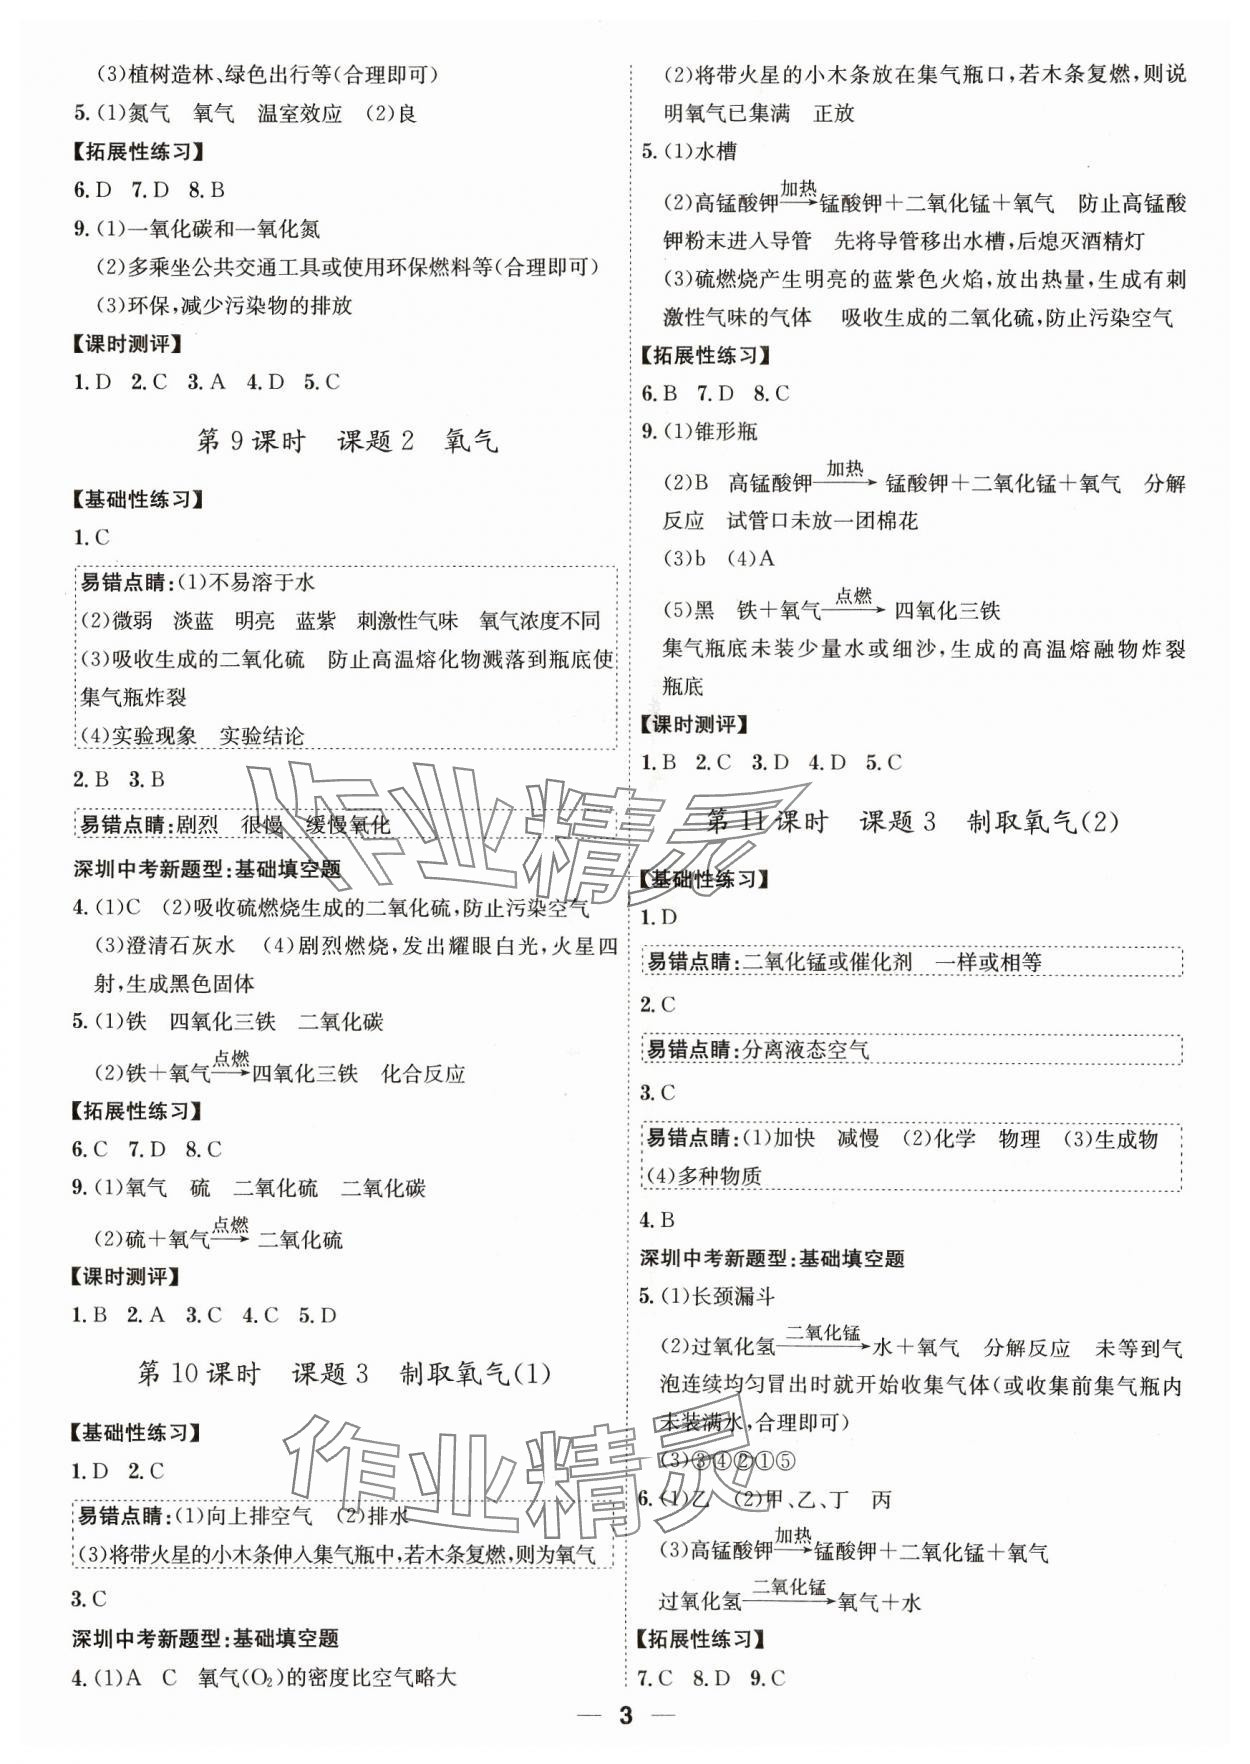 (3)植树造林、绿色出行等(合理即可)
5. (1)氮气　氧气　温室效应　(2)良
【拓展性练习】
6. D　7. D　8. B
9. (1)一氧化碳和一氧化氮
(2)多乘坐公共交通工具或使用环保燃料等(合理即可)
(3)环保,减少污染物的排放
【课时测评】
1. D　2. C　3. A　4. D　5. C
第9课时　课题2　氧气
【基础性练习】
1. C
易错点睛:(1)不易溶于水
(2)微弱　淡蓝　明亮　蓝紫　刺激性气味　氧气浓度不同
(3)吸收生成的二氧化硫　防止高温熔化物溅落到瓶底使
集气瓶炸裂
(4)实验现象　实验结论
2. B　3. B
易错点睛:剧烈　很慢　缓慢氧化
深圳中考新题型:基础填空题
4. (1)C　(2)吸收硫燃烧生成的二氧化硫,防止污染空气
(3)澄清石灰水　(4)剧烈燃烧,发出耀眼白光,火星四
射,生成黑色固体
5. (1)铁　四氧化三铁　二氧化碳
点燃
(2)铁＋氧气⟶四氧化三铁　化合反应
【拓展性练习】
6. C　7. D　8. C
9. (1)氧气　硫　二氧化硫　二氧化碳
点燃
(2)硫＋氧气⟶二氧化硫
【课时测评】
1. B　2. A　3. C　4. C　5. D
第10课时　课题3　制取氧气(1)
【基础性练习】
1. D　2. C
易错点睛:(1)向上排空气　(2)排水
(3)将带火星的小木条伸入集气瓶中,若木条复燃,则为氧气
3. C
深圳中考新题型:基础填空题
4. (1)A　C　氧气(O₂)的密度比空气略大
(2)将带火星的小木条放在集气瓶口,若木条复燃,则说
明氧气已集满　正放
5. (1)水槽
加热
(2)高锰酸钾⟶锰酸钾＋二氧化锰＋氧气　防止高锰酸
钾粉末进入导管　先将导管移出水槽,后熄灭酒精灯
(3)硫燃烧产生明亮的蓝紫色火焰,放出热量,生成有刺
激性气味的气体　吸收生成的二氧化硫,防止污染空气
【拓展性练习】
6. B　7. D　8. C
9. (1)锥形瓶
加热
(2)B　高锰酸钾⟶锰酸钾＋二氧化锰＋氧气　分解
反应　试管口未放一团棉花
(3)b　(4)A
点燃
(5)黑　铁＋氧气⟶四氧化三铁
集气瓶底未装少量水或细沙,生成的高温熔融物炸裂
瓶底
【课时测评】
1. B　2. C　3. D　4. D　5. C
第11课时　课题3　制取氧气(2)
【基础性练习】
1. D
易错点睛:二氧化锰或催化剂　一样或相等
2. C
易错点睛:分离液态空气
3. C
易错点睛:(1)加快　减慢　(2)化学　物理　(3)生成物
(4)多种物质
4. B
深圳中考新题型:基础填空题
5. (1)长颈漏斗
二氧化锰
(2)过氧化氢⟶水＋氧气　分解反应　未等到气
泡连续均匀冒出时就开始收集气体(或收集前集气瓶内
未装满水,合理即可)
(3)③④②①⑤
6. (1)乙　(2)甲、乙、丁　丙
加热
(3)高锰酸钾⟶锰酸钾＋二氧化锰＋氧气
二氧化锰
过氧化氢⟶氧气＋水
【拓展性练习】
7. C　8. D　9. C
— 3 —
作业精灵
作业精灵